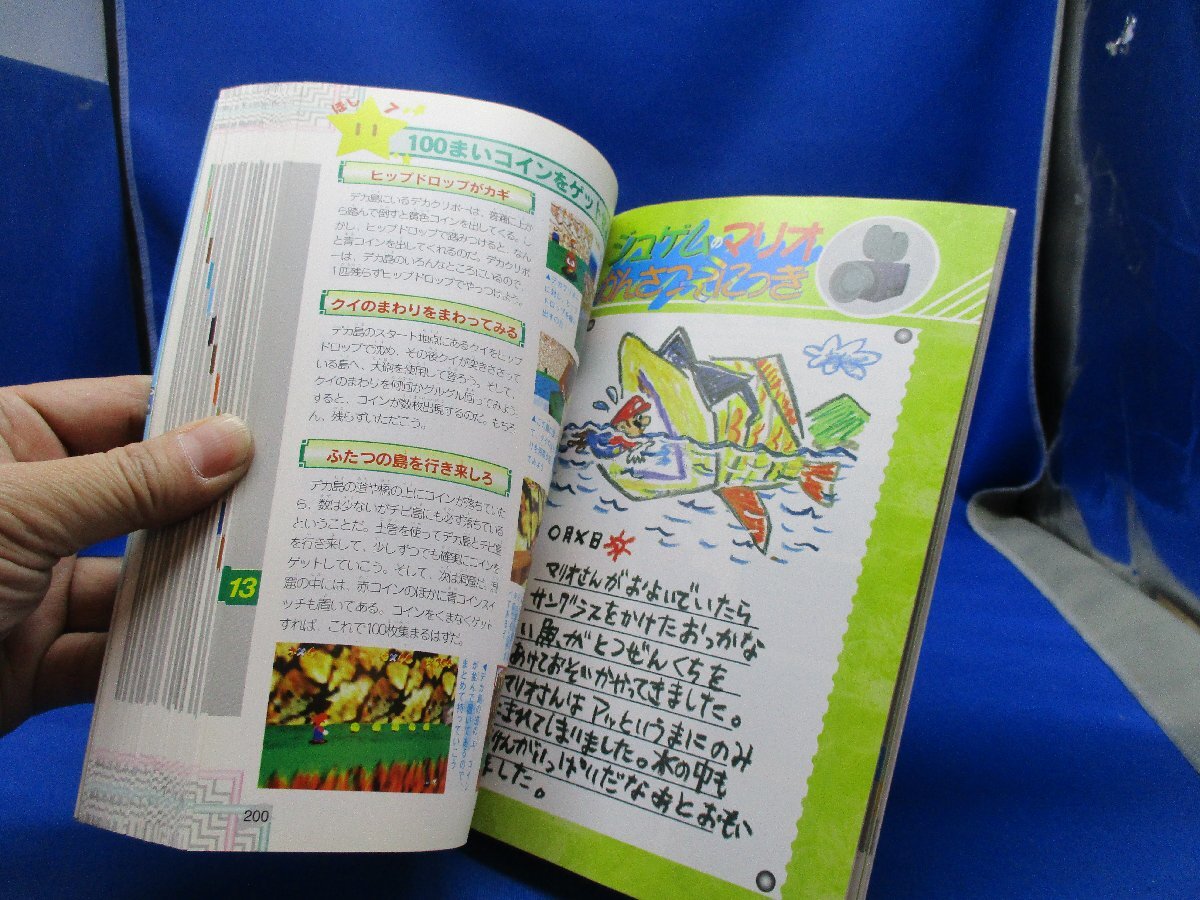 ほし 7
100まいコインをゲット
ヒップドロップがカギ
デカ島にいるデカクリボーは、普通に上か
ら踏んで倒すと黄色コインを出してくる。し
かし、ヒップドロップで踏みつけると、なん
と青コインを出してくれるのだ。デカクリボ
ーは、デカ島のいろんなところにいるので、
1匹残らずヒップドロップでやっつけよう。
クイのまわりをまわってみる
デカ島のスタート地点にあるクイをヒップ
ドロップで沈め、その後クイが突きささって
いる島へ、大砲を使用して登ろう。そして、
クイのまわりを何回かグルグル回ってみよう。
すると、コインが数枚出現するのだ。もちろ
ん、残らずいただこう。
ふたつの島を行き来しろ
デカ島の道や橋の上にコインが落ちていた
ら、数は少ないがチビ島にも必ず落ちている
ということだ。土管を使ってデカ島とチビ島
を行き来して、少しずつでも確実にコインを
ゲットしていこう。そして、次は洞窟だ。洞
窟の中には、赤コインのほかに青コインスイ
ッチも置いてある。コインをくまなくゲット
すれば、これで100枚集まるはずだ。
13
200
ジュゲムのマリオ
かんさつえにっき
○月×日
マリオさんがおよいでいたら
サングラスをかけたおっかな
い魚がとつぜんくちを
あけておそいかかってきました。
マリオさんはアッというまにのみ
まれてしまいました。水の中も
けんがいっぱいだなあとおもい
ました。